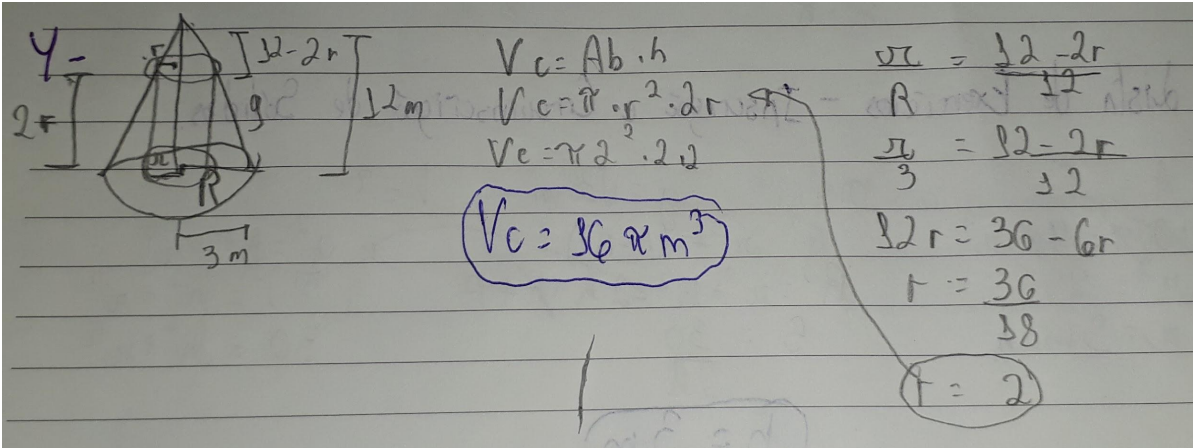 4-
r
12-2r
g
12m
2r
r
R
3m
Vc = Ab.h
Vc = π.r².2r
Vc = π2².2.2
Vc = 16πm³
r/R = 12-2r/12
r/3 = 12-2r/12
12r = 36-6r
r = 36/18
r = 2